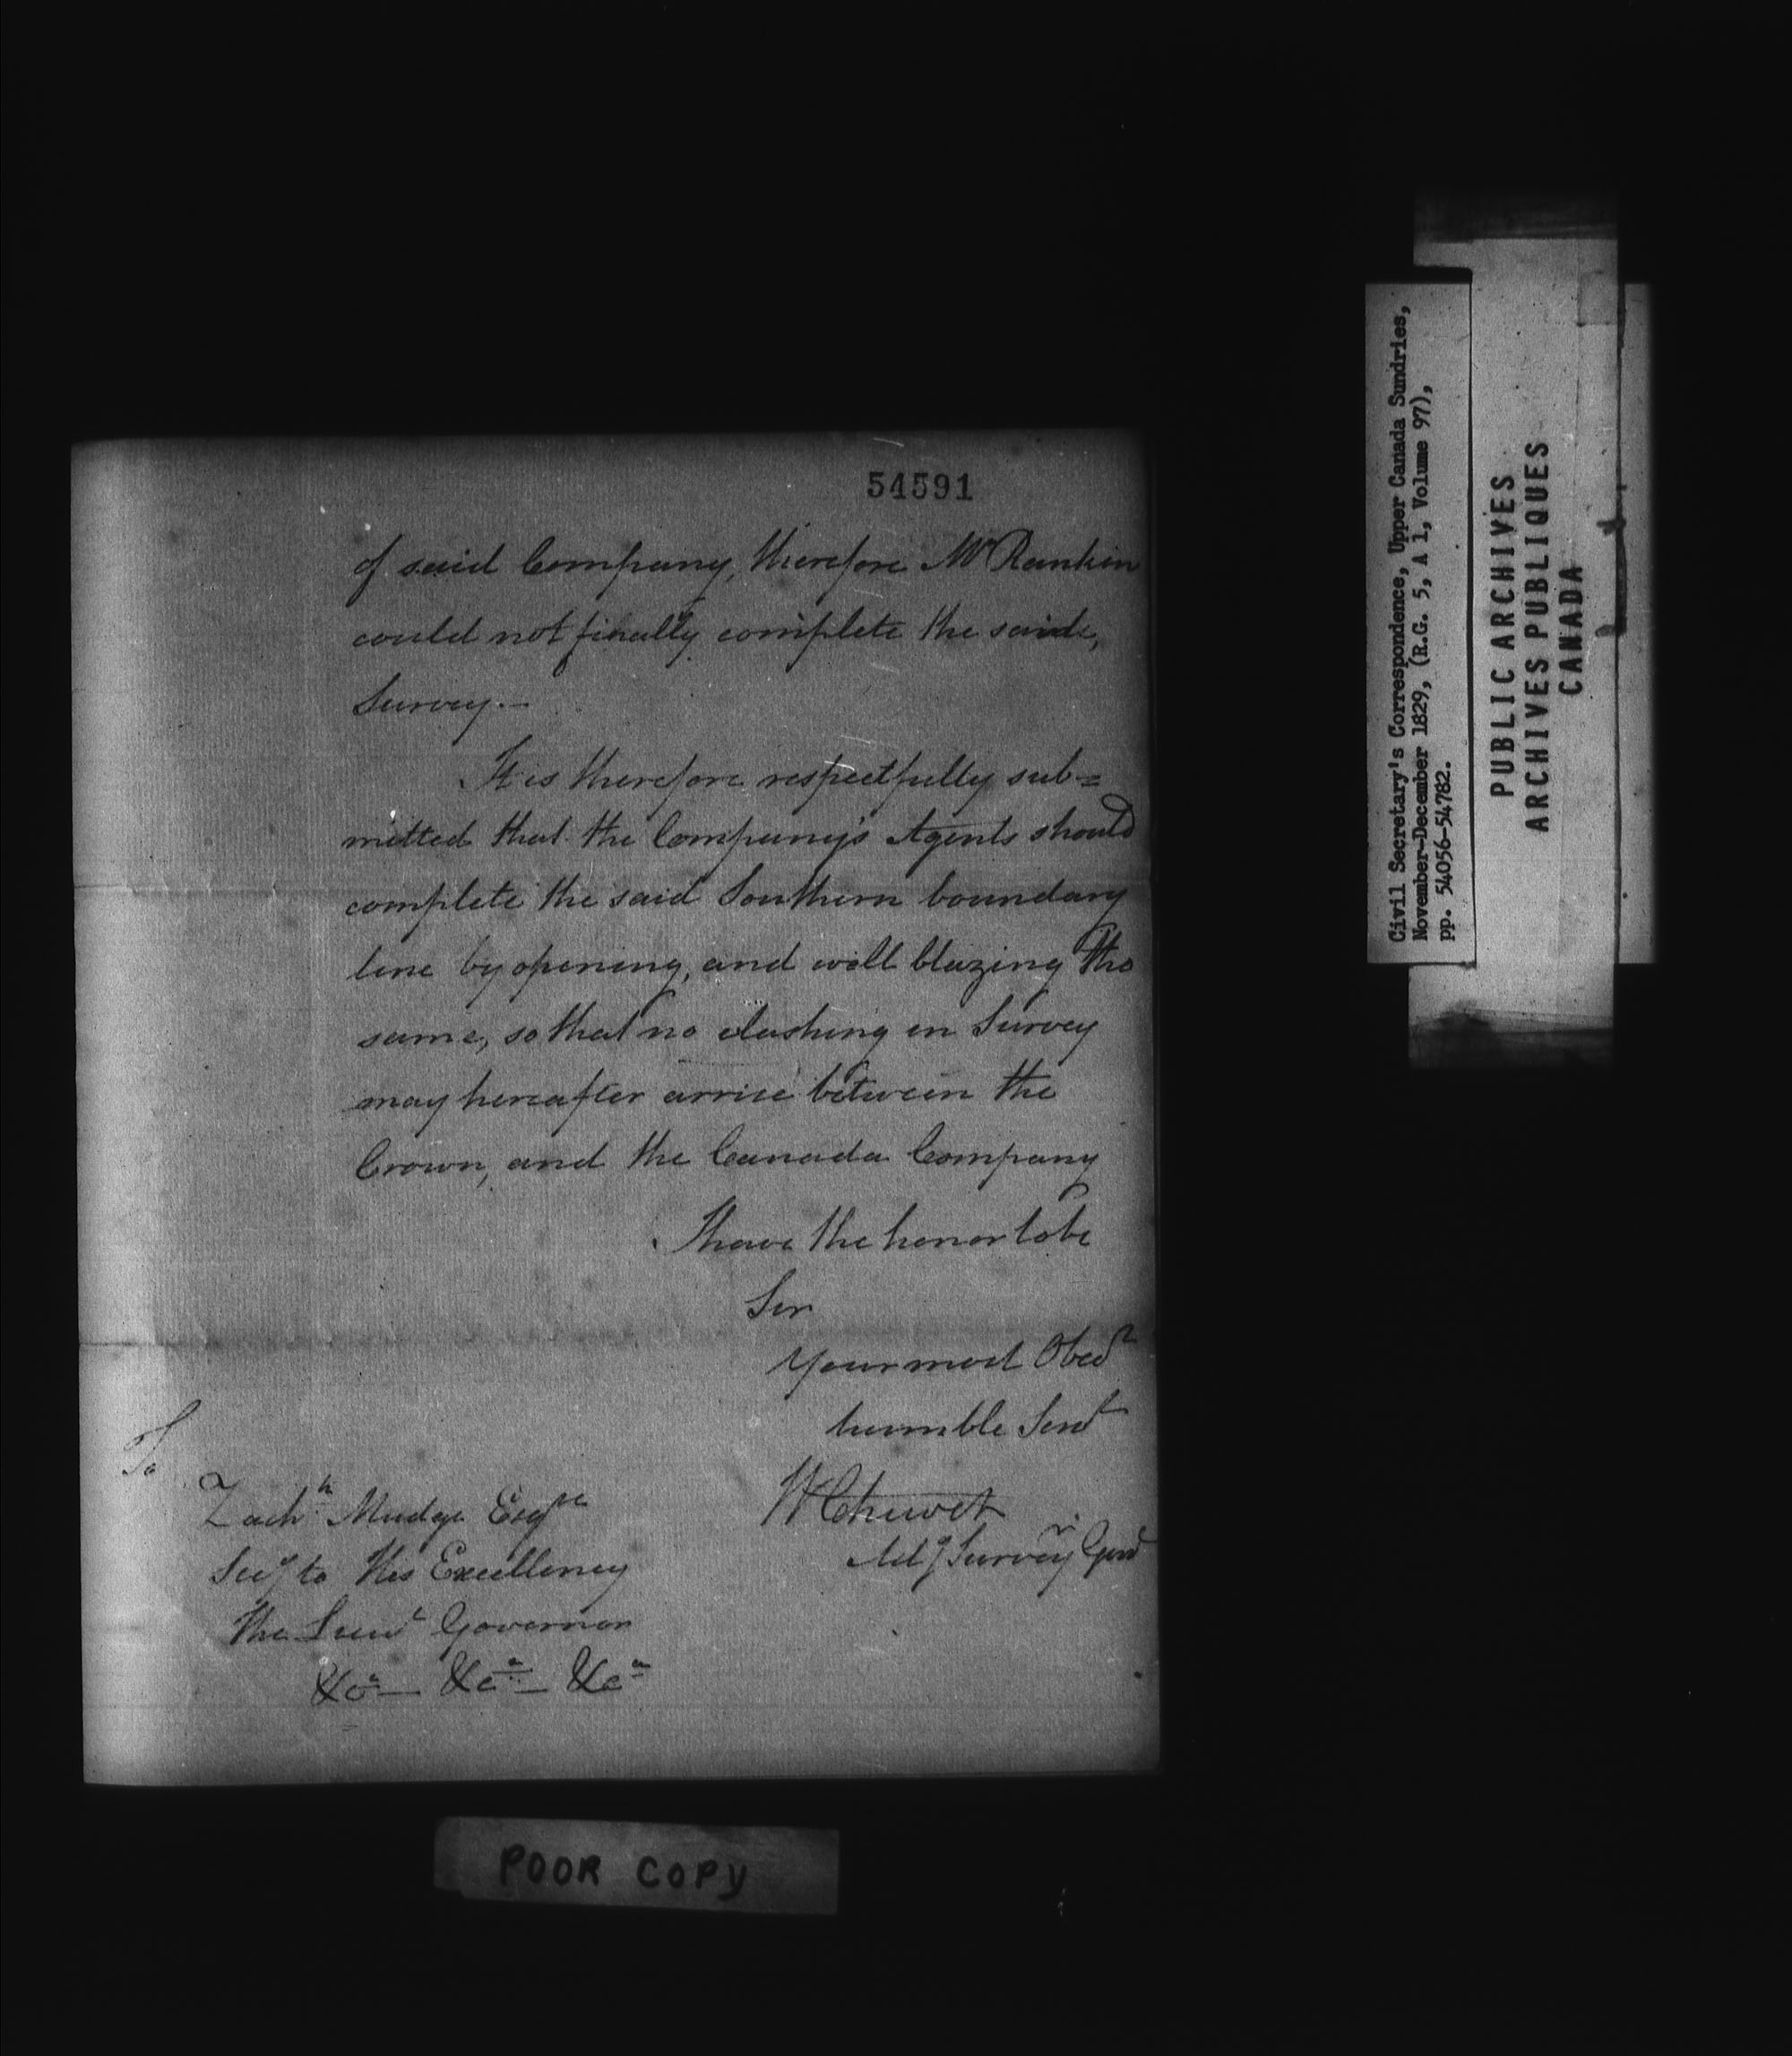 54591
of said Company, therefore Mr Rankin
could not finally complete the said,
Survey.—
It is therefore respectfully sub=
mitted that the Company's Agents should
complete the said Southern boundary
line by opening, and well blazing the
same, so that no clashing in Survey
may hereafter arrise between the
Crown, and the Canada Company
I have the honor to be
Sir
Your most Obedt
humble Servt
W Chewett
Actg Surveyr Genl
To
Zachh Mudge Esqre
Secy to His Excellency
The Lieut Governor
&ca— &ca— &ca
POOR COPY
Civil Secretary's Correspondence, Upper Canada Sundries,
November-December 1829, (R.G. 5, A 1, Volume 97),
pp. 54056-54782.
PUBLIC ARCHIVES
ARCHIVES PUBLIQUES
CANADA